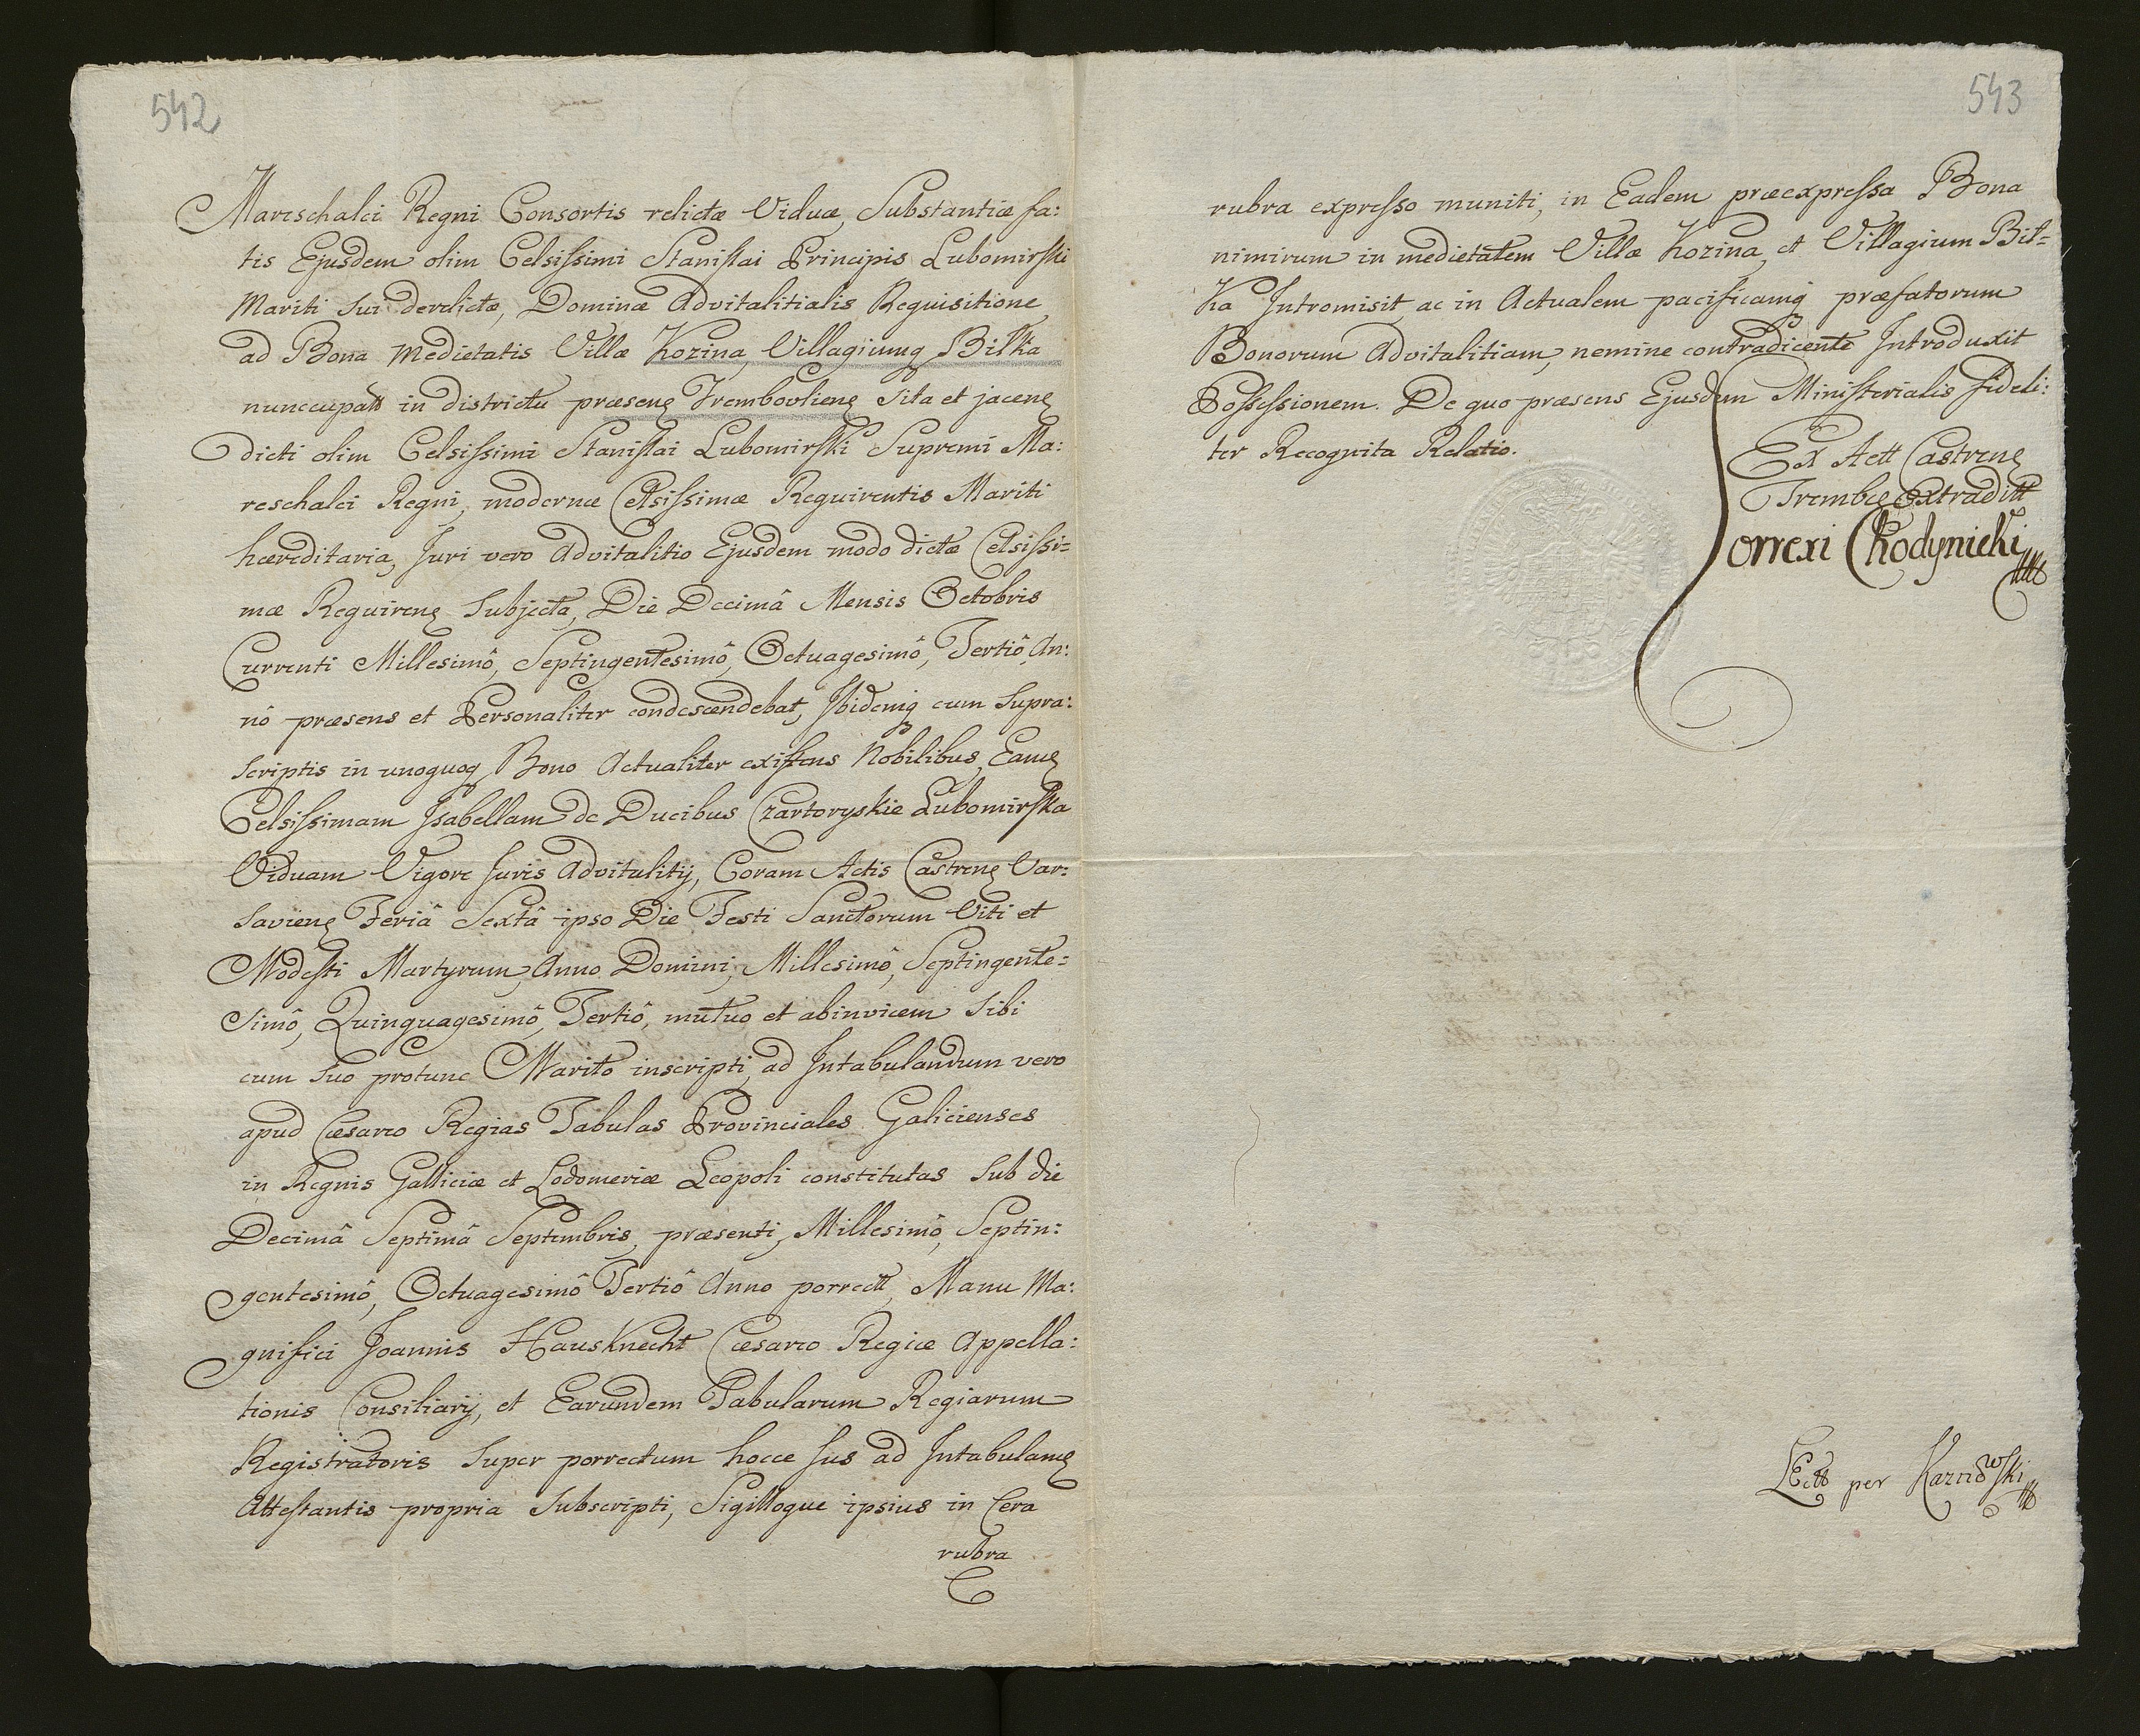 542
Mareschalci Regni Consortis relictæ Viduæ, Substantiæ fa:
tis Ejusdem olim Celsissimi Stanislai Principis Lubomirski
Mariti sui derelictæ, Dominæ Advitalitialis Requisitione
ad Bona Medietatis Villæ Kozina, Villagiumq Bilka
nuncupatt in districtu præsenę Tremboulienę sita et jacenę
dicti olim Celsissimi Stanislai Lubomirski Supremi Ma:
reschalci Regni, modernæ Celsissimæ Requirentis Mariti
hæreditaria, Juri vero Advitalitio Ejusdem modo dictæ Celsissi=
mæ Requirenę Subjecta, Die Decimâ Mensis Octobris
Currenti Millesimô, Septingentesimô, Octuagesimô, Tertiô, An:
nô præsens et Personaliter condescendebat, Ibidemq cum Supra:
scriptis in unoquoq Bono Actualiter existens Nobilibus, Eamę
Celsissimam Isabellam de Ducibus Czartoryskie Lubomirska
Viduam Vigore Juris Advitalitij, Coram Actis Castrenę Var:
savienę Feriâ Sextâ ipso Die Festi Sanctorum Viti et
Modesti Martyrum, Anno Domini, Millesimô, Septingente=
simô, Quinquagesimô, Tertiô, mutuo et abinvicem sibi
cum suo protunc Marito inscripti, ad Intabulandum vero
apud Cæsareo Regias Tabulas Provinciales Galicienses
in Regnis Galliciæ et Lodomeriæ Leopoli constitutas sub die
Decimâ Septimâ Septembris, præsenti, Millesimô, Septin:
gentesimô, Octuagesimô Tertiô Anno porrectt, Manu Ma:
gnifici Joannis HausKnecht Cæsareo Regiæ Appella:
tionis Consiliarij, et Earundem Tabularum Regiarum
Registratoris super porrectum hocce Jus ad Intabulamę
Attestantis propria Subscripti, Sigilloque ipsius in Cera
rubra
543
rubra expresso muniti, in Eadem præexpressa Bona
nimirum in medietatem Villæ Kozina, et Villagium Bil=
ka Intromisit, ac in Actualem pacificamq præfatorum
Bonorum Advitalitiam, nemine contradicente Introduxit
Possessionem. De quo præsens Ejusdem Ministerialis fideli:
ter Recognita Relatio.
Ex Actt Castrenę
Trembę Extraditt
Correxi Chodynicki
Lectt per